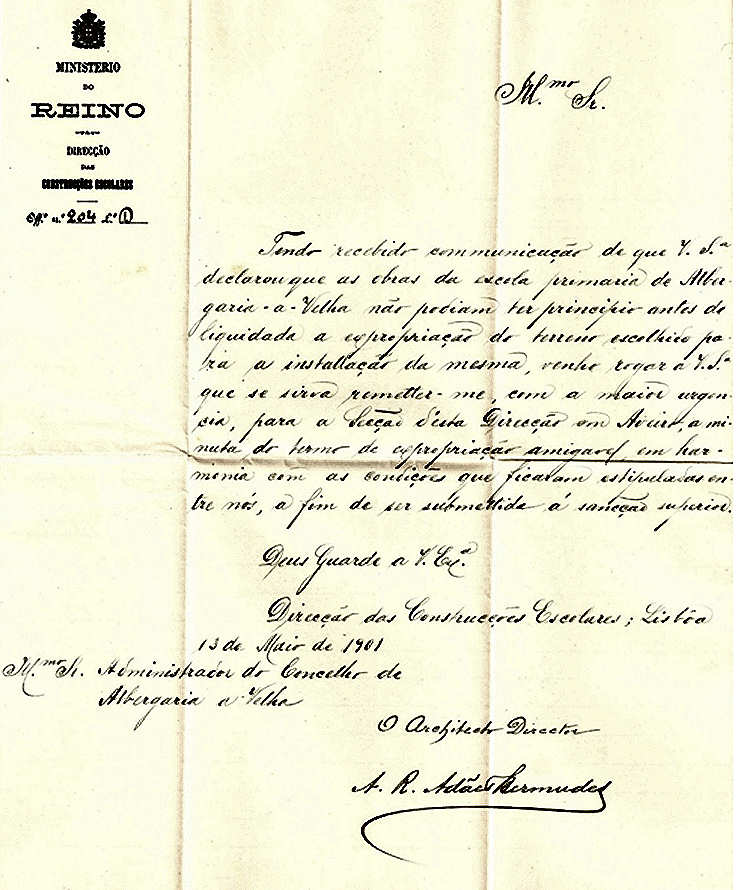 MINISTERIO
DO
REINO
DIRECÇÃO
DAS
CONSTRUCÇÕES ESCOLARES
Off.º n.º 204 L.º 1
Ill.mo Sr.
Tendo recebido communicação de que V. S.ª
declarou que as obras da escola primaria de Alber-
garia-a-Velha não podiam ter principio antes de
liquidada a expropriação do terreno escolhido pa-
ra a installação da mesma, venho rogar a V. S.ª
que se sirva remetter-me, com a maior urgen-
cia, para a Secção d'esta Direcção em Aveiro, a mi-
nuta do termo de expropriação amigavel em har-
monia com as condições que ficaram estipuladas en-
tre nós, a fim de ser submettida á sancção superior.
Deus Guarde a V. Ex.ª
Direcção das Construcções Escolares; Lisbôa
13 de Maio de 1901
Ill.mo Sr. Administrador do Concelho de
Albergaria a Velha
O Architecto Director
A. R. Adães Bermudes